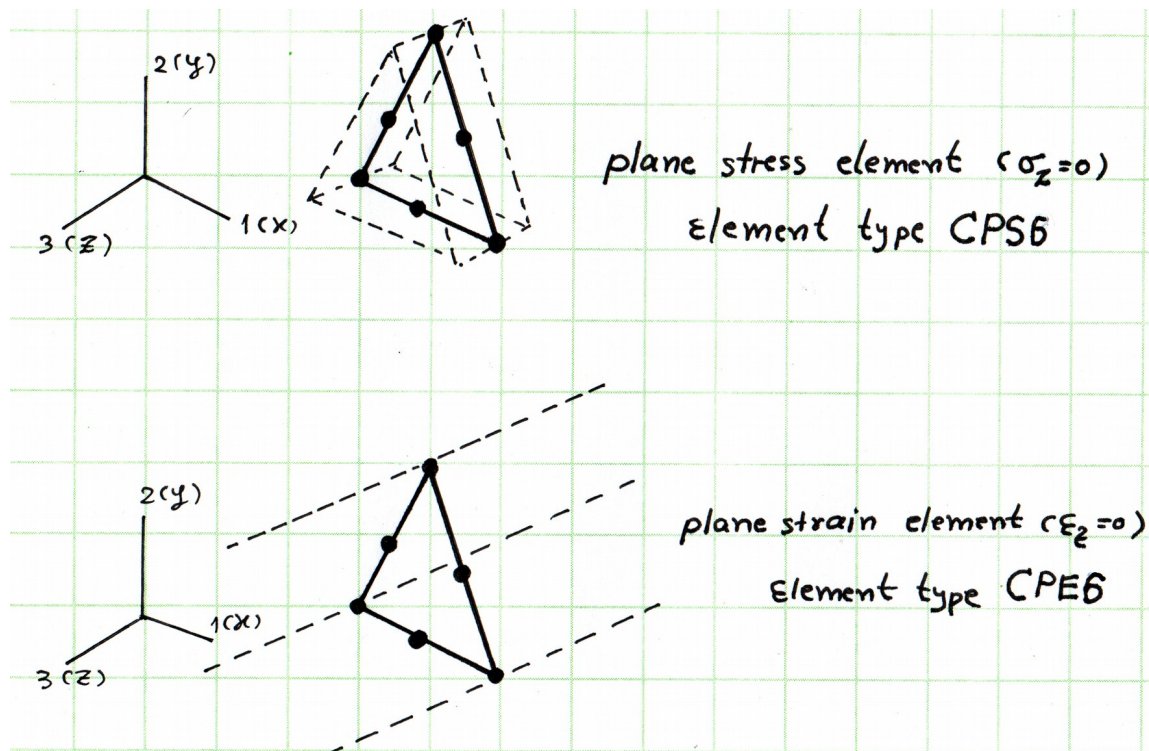 2(y)
1(x)
3(z)
plane stress element (σz=0)
Element type CPS6
2(y)
1(x)
3(z)
plane strain element (εz=0)
Element type CPE6